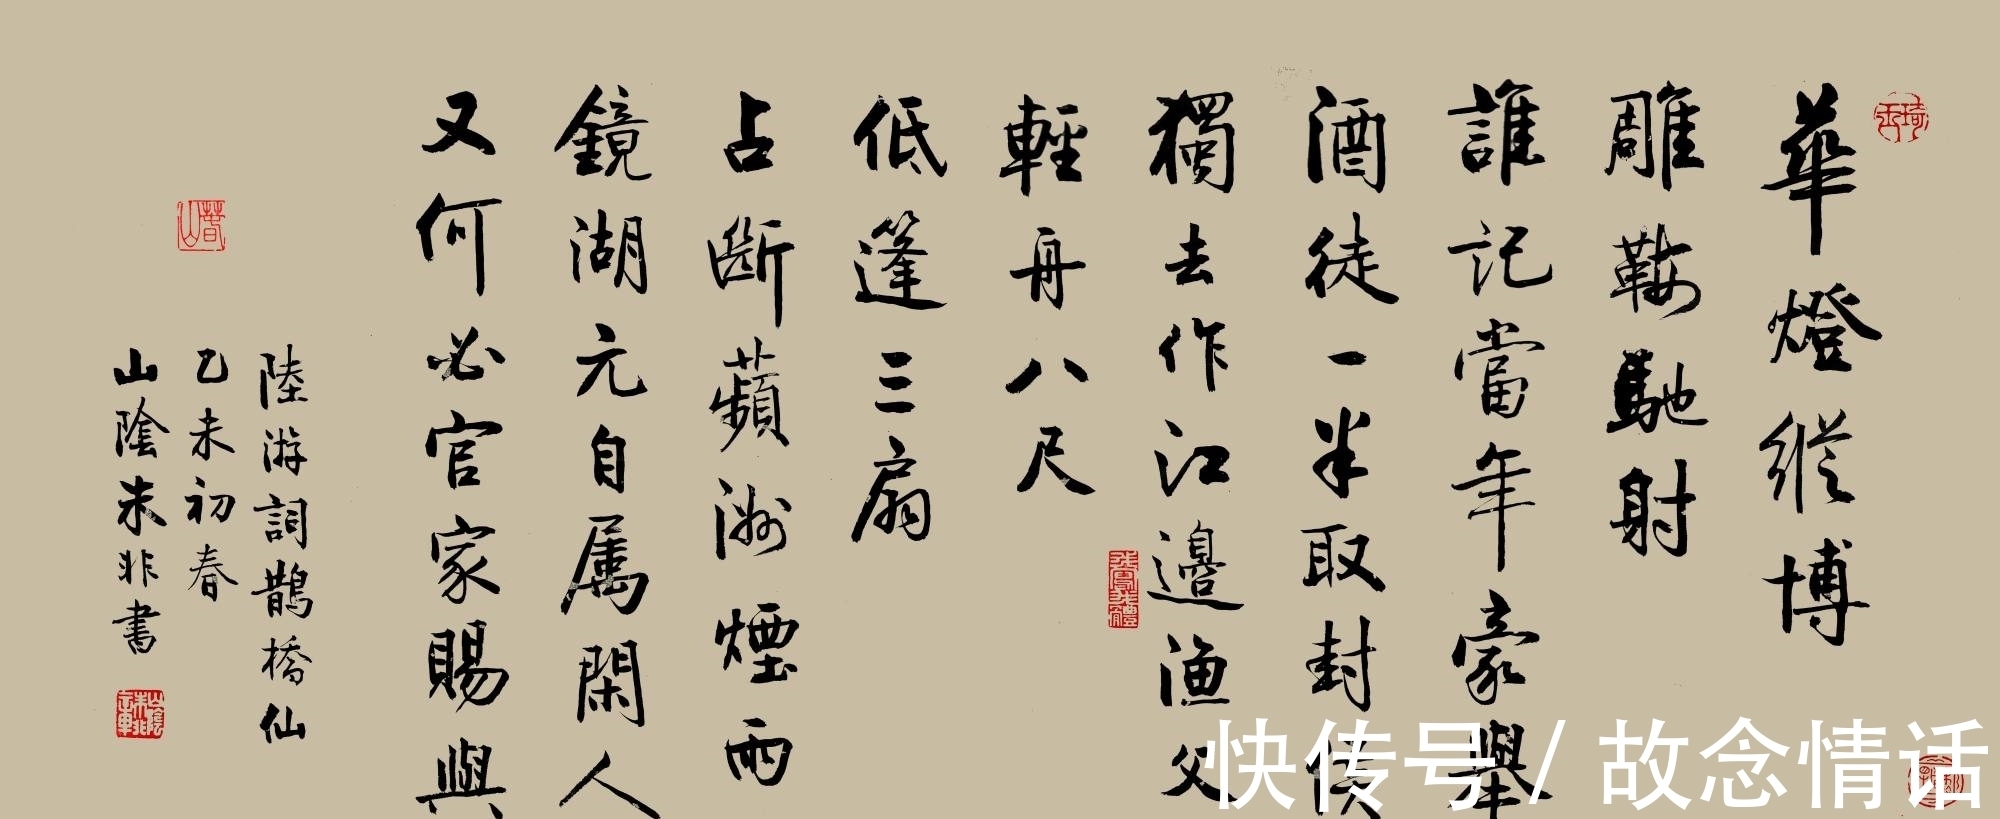 華燈縱博
雕鞍馳射
誰記當年豪舉
酒徒一半取封侯
獨去作江邊漁父
輕舟八尺
低篷三扇
占斷蘋洲煙雨
鏡湖元自屬閑人
又何必官家賜與
陸游詞鵲橋仙
乙未初春
山陰朱非书
快传号/故念情话